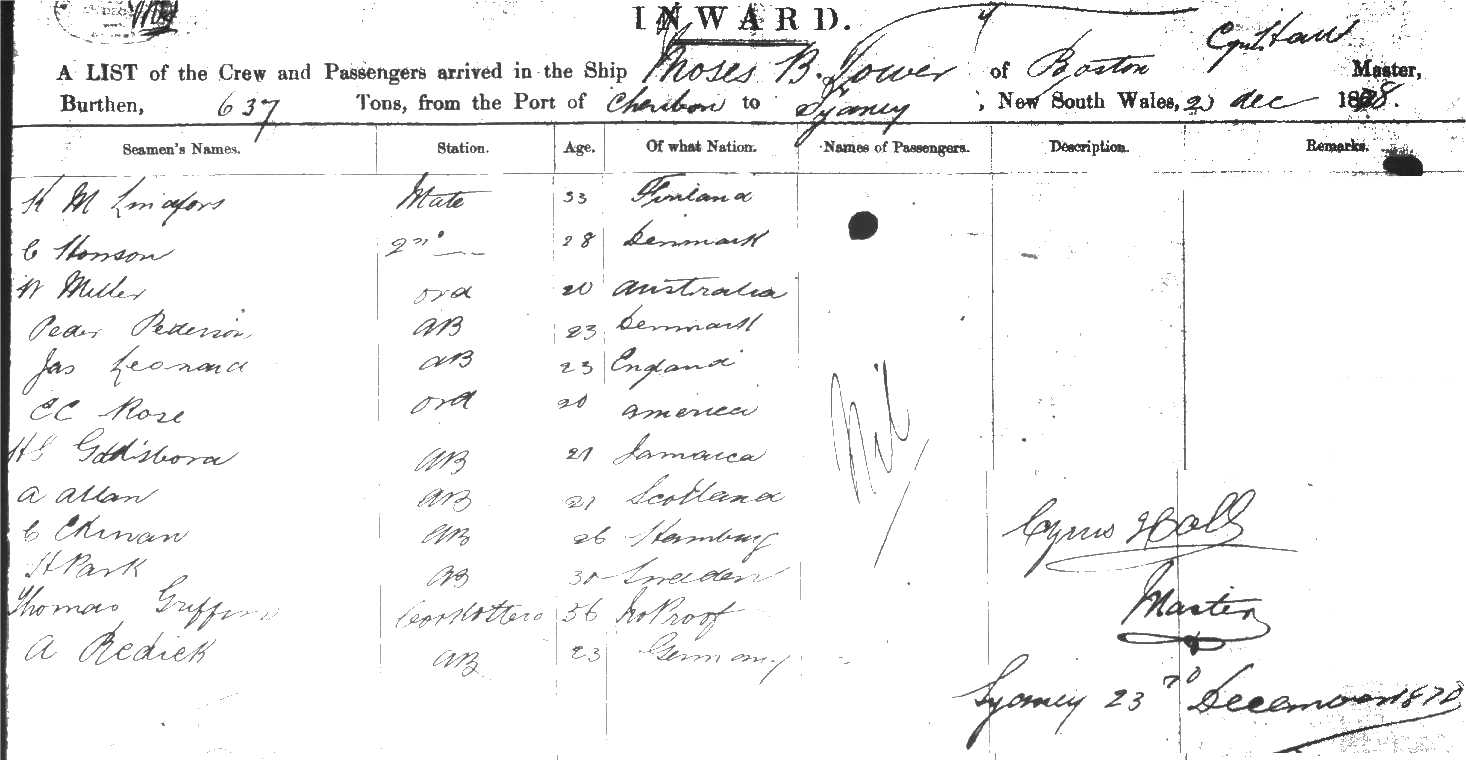 INWARD.
Cyrus Hall
A LIST of the Crew and Passengers arrived in the Ship Moses B. Tower of Boston Master,
Burthen, 637 Tons, from the Port of Cheribon to Sydney, New South Wales, 23 dec 1878.
Seamen's Names. Station. Age. Of what Nation. Names of Passengers. Description. Remarks.
K M Lindfors Mate 33 Finland
C Honson 2nd 28 Denmark
W Miller ord 20 Australia
Peder Pederson AB 23 Denmark
Jas Leonard AB 23 England
CC Rose ord 20 America
HG AB 21 Jamaica
A Allan AB 21 Scotland
C AB 26 Hamburg
H Park AB 30 Sweden
Thomas Griffin 56 No Proof
A Redick AB 23 Germany
Nil
Cyrus Hall
Master
Sydney 23rd December 1878